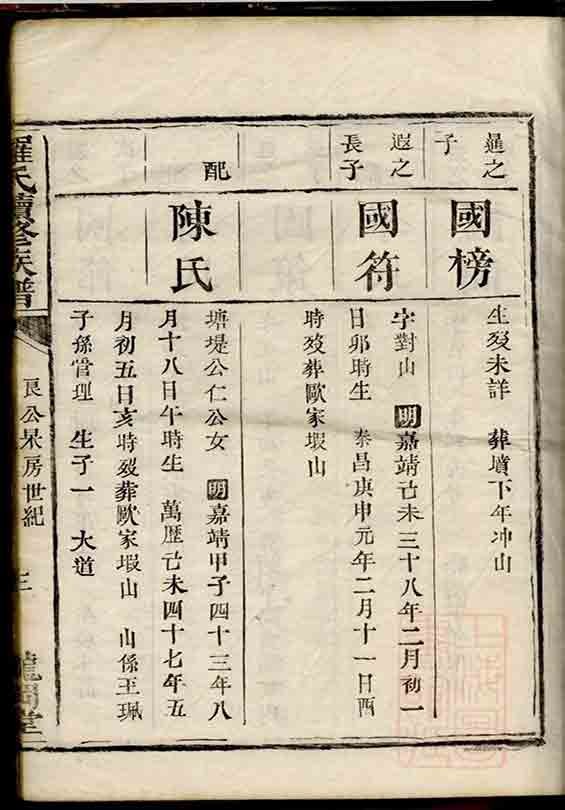 暹之
子
國榜
生歿未詳 葬墳下年冲山
遐之
長子
國符
字對山 明嘉靖己未三十八年二月初一
日卯時生 泰昌庚申元年二月十一日酉
時歿葬歐家塅山
配
陳氏
塘堤公仁公女 明嘉靖甲子四十三年八
月十八日午時生 萬歷己未四十七年五
月初五日亥時歿葬歐家塅山 山係王珮
子孫管理 生子一 大道
羅氏續修族譜
良公杲房世紀
三